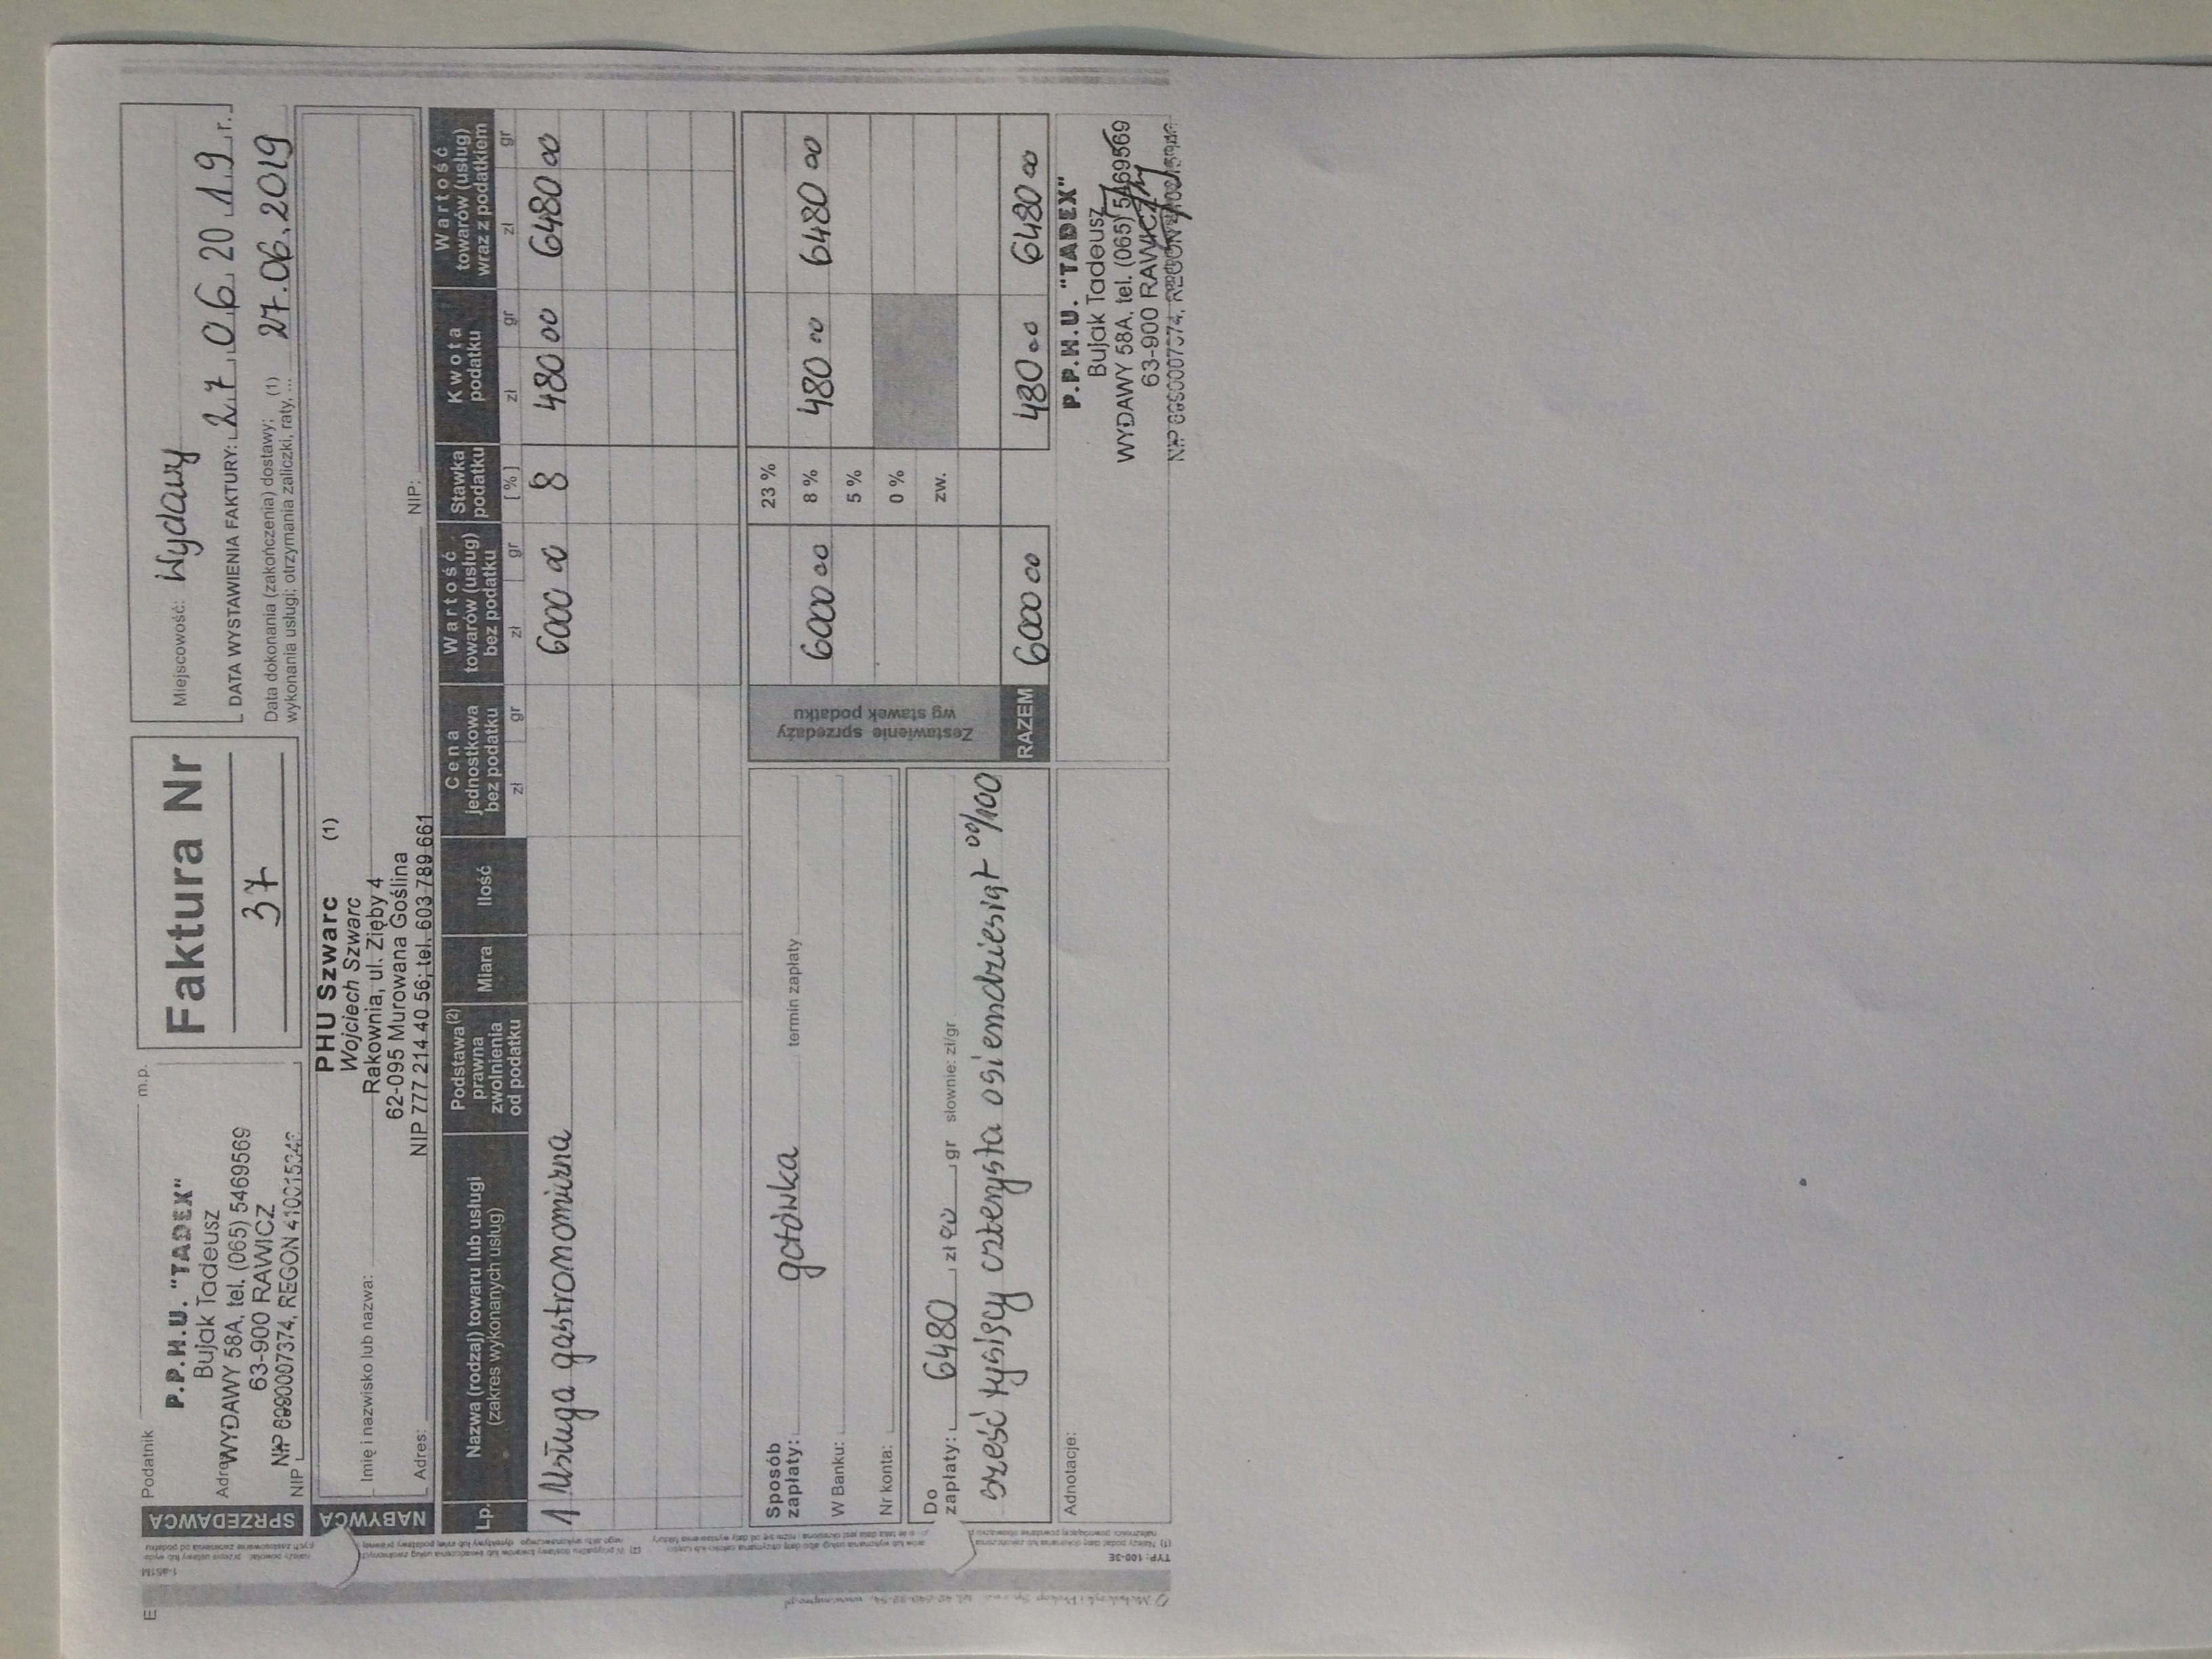 E
SPRZEDAWCA
Podatnik
m.p.
P.P.H.U. "TADEX"
Bujak Tadeusz
Adres
WYDAWY 58A, tel. (065) 5469569
63-900 RAWICZ
NIP
NIP 6990007374, REGON
Faktura Nr
37
Miejscowość: Wydawy
DATA WYSTAWIENIA FAKTURY: 27.06.2019 r.
Data dokonania (zakończenia) dostawy; (1)
wykonania usługi; otrzymania zaliczki, raty, ... 27.06.2019
NABYWCA
PHU Szwarc (1)
Wojciech Szwarc
Imię i nazwisko lub nazwa:
Rakownia, ul. Zięby 4
62-095 Murowana Goślina
Adres:
NIP 777 214 40 56; tel. 603 789 661
NIP:
Lp.
Nazwa (rodzaj) towaru lub usługi
(zakres wykonanych usług)
Podstawa(2)
prawna
zwolnienia
od podatku
Miara
Ilość
Cena
jednostkowa
bez podatku
zł gr
Wartość
towarów (usług)
bez podatku
zł gr
Stawka
podatku
[%]
Kwota
podatku
zł gr
Wartość
towarów (usług)
wraz z podatkiem
zł gr
1 Usługa gastronomiczna 6000 00 8 480 00 6480 00
Sposób
zapłaty: gotówka termin zapłaty
W Banku:
Nr konta:
Do
zapłaty: 6480 zł 00 gr słownie: zł/gr
sześć tysięcy czterysta osiemdziesiąt 00/100
Zestawienie sprzedaży
wg stawek podatku
23 %
6000 00 8 % 480 00 6480 00
5 %
0 %
zw.
RAZEM 6000 00 480 00 6480 00
Adnotacje:
P.P.H.U. "TADEX"
Bujak Tadeusz
WYDAWY 58A, tel. (065) 5469569
63-900 RAWICZ
TYP: 100-3E